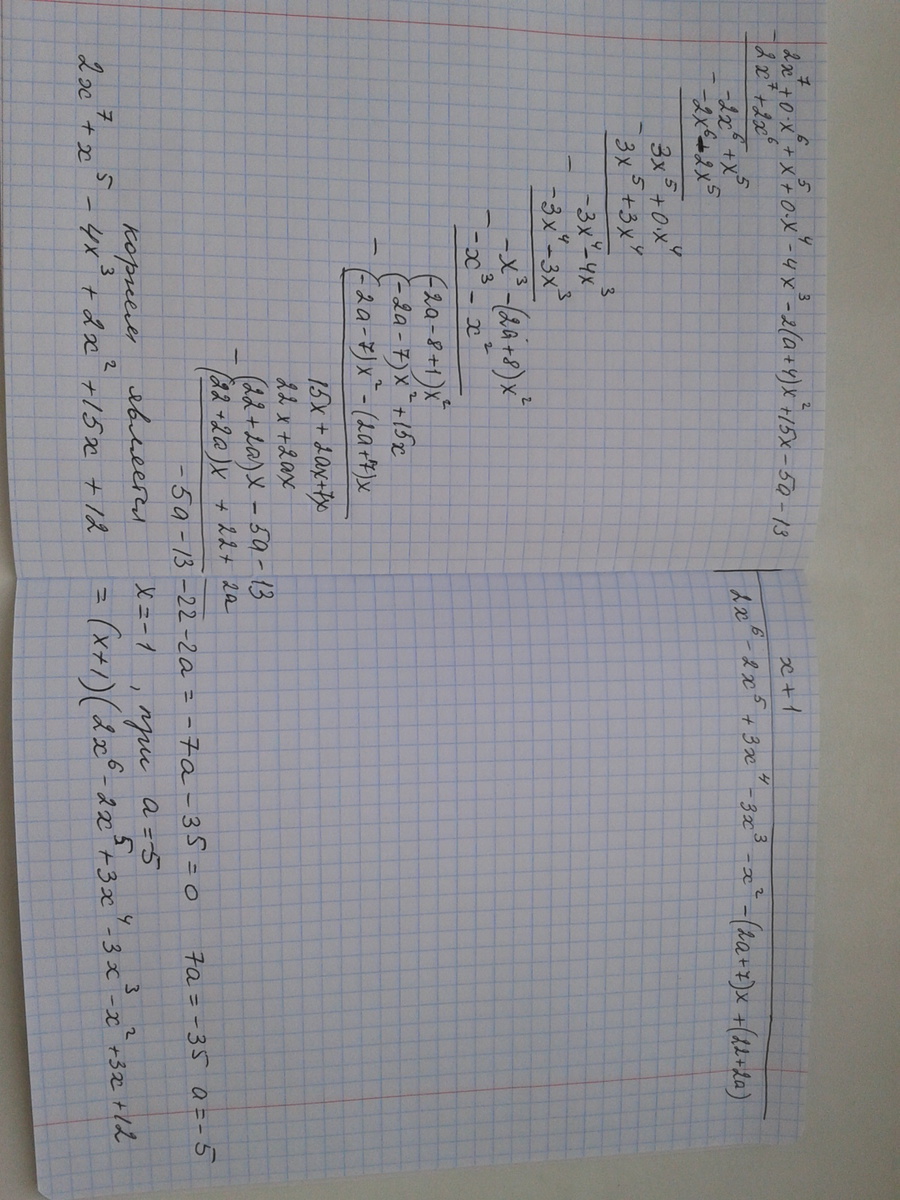 2x⁷ + 0·x⁶ + x⁵ + 0·x⁴ - 4x³ - 2(a+4)x² + 15x - 5a - 13
x + 1
- 2x⁷ + 2x⁶
2x⁶ - 2x⁵ + 3x⁴ - 3x³ - x² - (2a+7)x + (22+2a)
-2x⁶ + x⁵
- -2x⁶ - 2x⁵
3x⁵ + 0·x⁴
- 3x⁵ + 3x⁴
-3x⁴ - 4x³
- -3x⁴ - 3x³
-x³ - (2a+8)x²
- -x³ - x²
(-2a-8+1)x²
(-2a-7)x² + 15x
- (-2a-7)x² - (2a+7)x
15x + 2ax + 7x
22x + 2ax
(22+2a)x - 5a - 13
- (22+2a)x + 22 + 2a
-5a - 13 - 22 - 2a = -7a - 35 = 0 7a = -35 a = -5
корнем является x = -1, при a = -5
2x⁷ + x⁵ - 4x³ + 2x² + 15x + 12 = (x+1)(2x⁶ - 2x⁵ + 3x⁴ - 3x³ - x² + 3x + 12